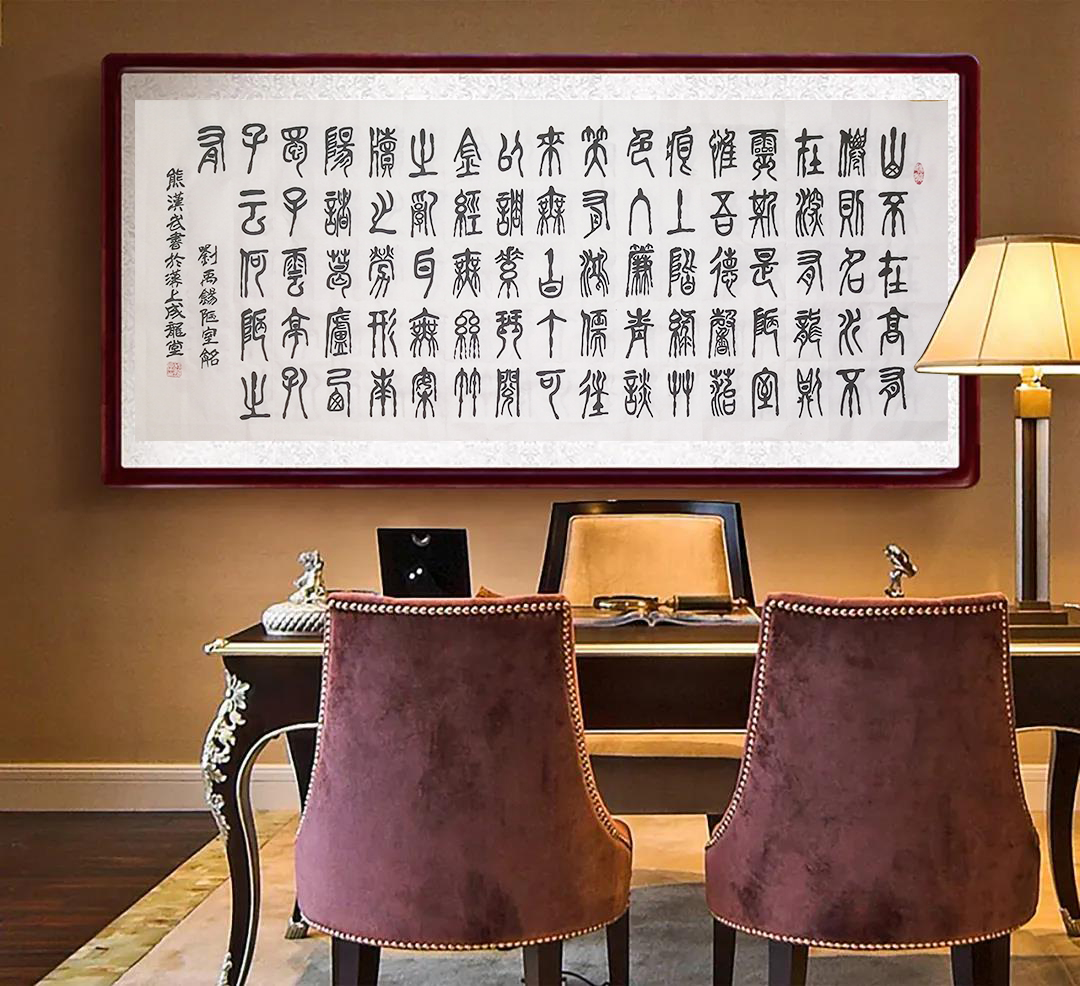 山不在高有
僊則名水不
在深有龍則
靈斯是陋室
惟吾德馨苔
痕上階綠艸
色入簾青談
笑有鴻儒往
來無白丁可
以調素琴閱
金經無絲竹
之亂耳無案
牘之勞形南
陽諸葛廬西
蜀子雲亭孔
子云何陋之
有
劉禹錫陋室銘
熊漢武書於漢上成龍堂